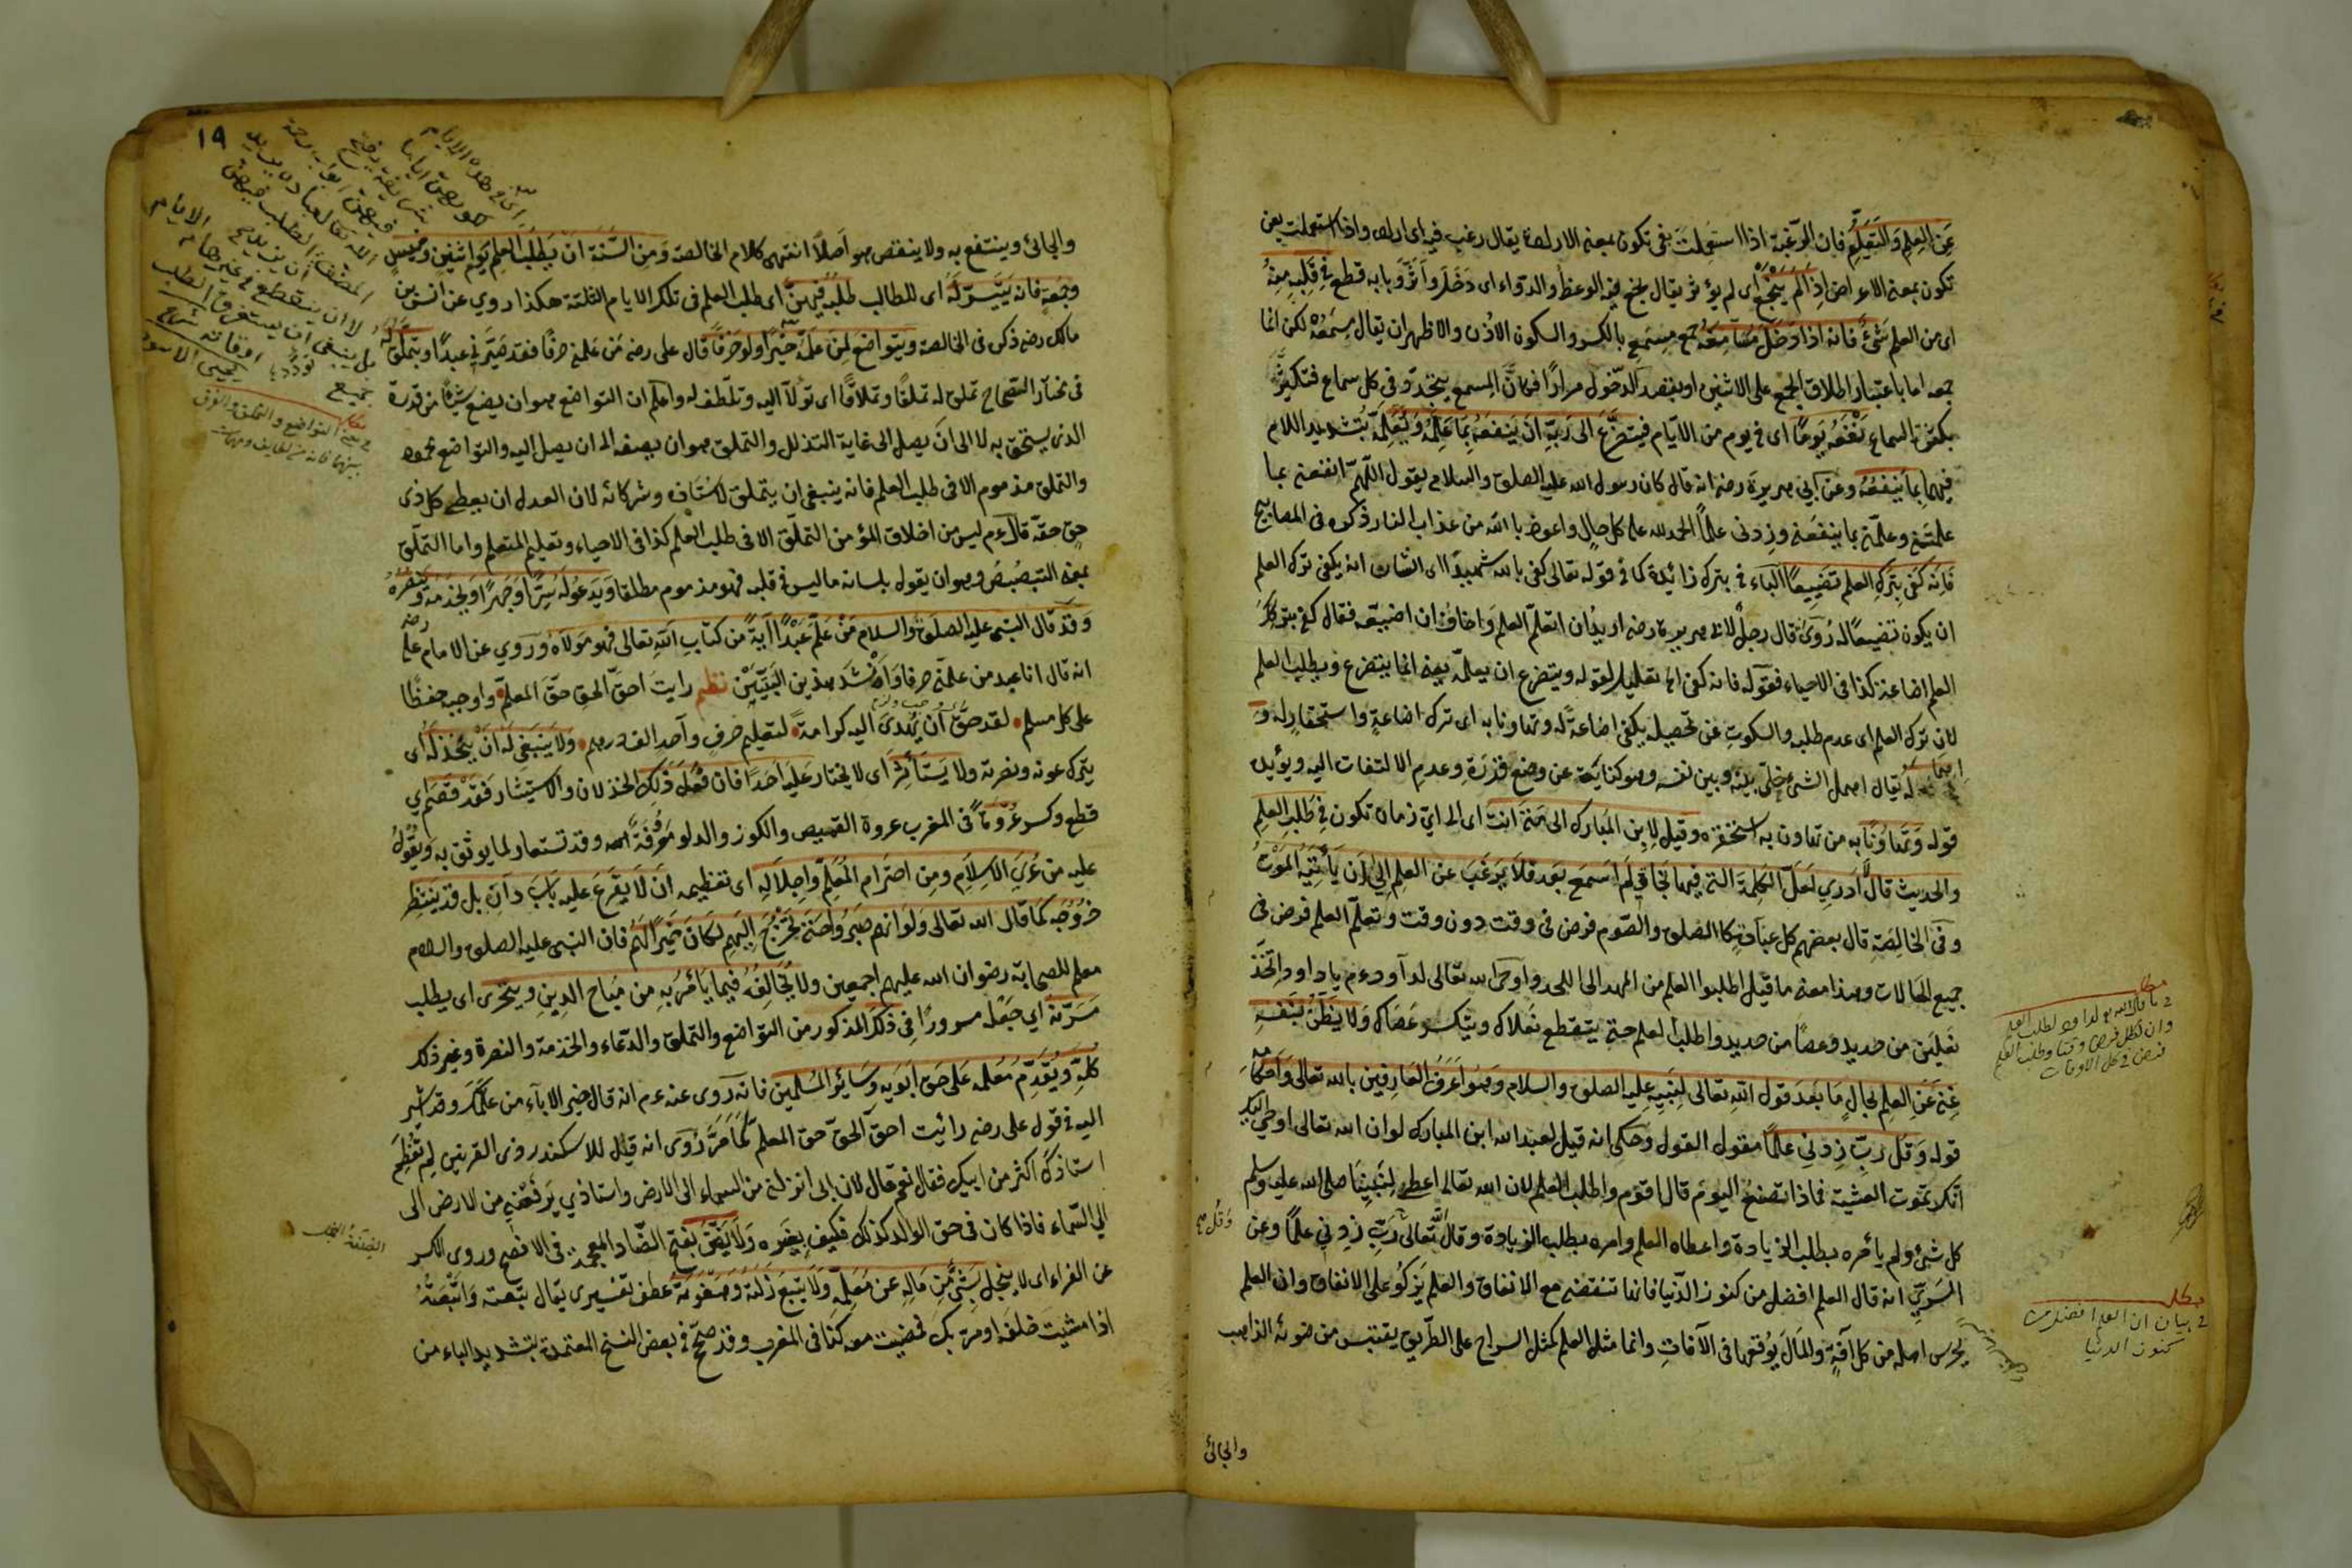 عَنِ العِلمِ وَالتَّعَلُّمِ فان الرّغبة اذا استعملت بفى تكون بمعنى الارادة يقال رغب فيه اى اراده واذا استعملت بعن
تكون بمعنى الاعراض اِذا لَم يَنجَع اى لم يؤثر يقال نجع فيه الوعظ والدّواء اى دَخَل واَثّر وبابه قطع فِى قَلبِهِ مِنهُ
اى من العلم شَىءٌ فانه اذا دَخَلَ مَسامِعَه جمع مسمع بالكسر والسكون الاذن والاظهر ان يقال مِسمَعَه لكن انما
جمعه اما باعتبار اطلاق الجمع على الاثنين او بقصد الدّخول مرارًا فكانّ المسمع يتجدّد فى كل سماع فتكثّر
بكثرة السماع نَفَعَه يَومًا اى فى يوم من الايّام فيتضرّع الى رَبّهِ ان يَنفعَه بما عَلِمَه ويُعَلِّمَه بتشديد اللام
فيهما بِما يَنفعُه وعن ابى هريرة رضه انه قال كان رسول الله عليه الصلوة والسلام يقول اللّهمّ انفعنى بما
علمتنى وعلّمنى بما ينفعنى وزدنى علمًا الحمد لله على كل حال واعوذ بالله من عذاب النار ذكره فى المصابيح
فَاِنّه كَفى بِتَركِ العلم تَضييعًا الباء فى بترك زائدة كما فى قوله تعالى كفى بالله شهيدًا اى الشان انه يكفى ترك العلم
ان يكون تضييعًا له رُوىَ قال رجلٌ لابى هريرة رضه اريد ان اتعلّم العلم واخاف ان اضيّعه فقال كفى بتركك
العلم اضاعة كذا فى الاحياء فقوله فانه كفى الخ تعليل لقوله ويتضرع ان يعلّمه يعنى انما يتضرع ويطلب العلم
لان ترك العلم اى عدم طلبه والسكوت عن تحصيله يكفى اضاعةً له وتهاونا به اى ترك اضاعةٍ واستحقار له و
له يقال اهمل الشىء خلّى بينه وبين نفسه وهو كناية عن وضع قدره وعدم الالتفات اليه ويؤيده
قوله وَتهاوُنًا بِه من تهاون به استحقره وقيل لِابن المُبارك الى مَتى انت اى الى اىّ زمان تكون فِى طَلبِ العِلمِ
والحديث قال لا اَدرى لعَلّ الكلِمةَ التى فيها نجاتى لَم اسمع بَعد فلا يَرغَب عن العلم الى ان يَأتِيَه المَوتُ
وفى الخالصة قال بعضهم كل عبادة كالصلوة والصّوم فرض فى وقت دون وقت وتعلّم العلم فرض فى
جميع الحالات وهذا معنى ما قيل اطلبوا العلم من المهد الى اللحد واوحى الله تعالى لداود عم يا داود اتّخذ
نعلين من حديد وعصًا من حديد واطلب العلم حتى يتقطع نعلاك وينكسر عَصاك وَلا يَظُنّ بنَفسِهِ
غِنىً عَنِ العِلمِ بحالٍ ما بَعدَ قولِ اللهِ تعالى لِنَبيّه عليه الصلوة والسلام وهُو اَعرَفُ العارِفين بالله تعالى وَاَحكامِه
قوله وَقُل رَبِّ زِدنى عِلمًا مقول القول وحكى انه قيل لعبد الله ابن المبارك لو ان الله تعالى اوحى اليك
انك تموت العشية فماذا تصنع اليوم قال اقوم واطلب العلم لان الله تعالى اعطى لنبيّنا صلى الله عليه وسلم
كل شئ ولم يأمره بطلب الزيادة واعطاه العلم وامره بطلب الزيادة وقال الله تعالى رَبِّ زدنى علمًا وعن
السّرىّ انه قال العلم افضل من كنوز الدّنيا فانها تنقضى مع الانفاق والعلم يَزكُو على الانفاق وان العلم
يحرس اهله من كل آفةٍ والمال يُوقعها فى الآفات وانما مثل العلم كمثل السراج على الطّريق يقتبس من ضوئه الذاهب
والجائى
وَقُل
مطلب
فيما قال الله لداود لطلب العلم
وان لكل فرض وقتا وطلب العلم
فرض فى كل الاوقات
مطلب
فى بيان ان العلم افضل من
كنوز الدنيا
١٩
والجائى وينتفع به ولا ينقص هو اَصلاً انتهى كلام الخالصة وَمِن السّنّة ان يَطلُبَ العِلمَ يَوم اثنينِ وخميسٍ
وجُمعةٍ فانه يَتَيسّر لَه اى للطالب طَلبُه فيهنّ اى طلب العلم فى تلك الايام الثلثة هكذا روى عن انس بن
مالك رضه ذكره فى الخالصة ويتواضع لِمَن علّمه خيرًا ولو حَرفًا قال على رضه مَن علمنى حرفًا فقد صيّرنى عبدًا ويتملّق له
فى مختار الصّحاح تملق له تملقًا وتملاقًا اى تودّد اليه وتلطّف له واعلم ان التواضع هو ان يضع شيئًا من قدره
الذى يستحق به لا الى ان يصل الى غاية التذلل والتملق هو ان يضعه الى ان يصل اليه والتواضع محمود
والتملق مذموم الا فى طلب العلم فانه ينبغى ان يتملق لاستاذه وشركائه لان العدل ان يعطى كل ذى
حقّ حقّه قال عم ليس من اخلاق المؤمن التملّق الا فى طلب العلم كذا فى الاحياء وتعليم المتعلم واما التملّق
بمعنى التبصبُص وهو ان يقول بلسانه ما ليس فى قلبه فهو مذموم مطلقا وَيَدعُو لَه سِرًّا وجَهرًا وَيخدمَه وَينصُره
وَقد قال النبى عليه الصلوة والسلام مَن علّم عَبدًا آيةً من كتاب الله تعالى فهو مَولاه وروى عن الامام على
انه قال انا عبد من علّمنى حرفا وَانشَد هذين البَيتين نظم رايتَ احقّ الحق حَقّ المعلّم واوجبه حفظًا
على كل مسلم لقد حقّ اَن يُهدى اليه كرامةً لتعليم حرف واحد الف درهم وَلا يَنبغى لَه اَن يخذله اى
يترك عونه ونصرته ولا يَستأثِر اى لا يختار عَليه اَحدًا فان فَعَل ذلك الخذلان والاستيثار فَقَد قصم اى
قطع وكسر عُروَةً فى المغرب عروة القميص والكوز والدلو معروفة اهـ وقد تستعار لما يوثق به ويُعوّلُ
عليه مِن عُرى الاِسلامِ ومِن احترامِ المُعلّم واِجلالِه اى تعظيمه اَن لا يَقرَع عليه بَابَ دارِه بل قد يَنتظر
خُروجَه كما قال الله تعالى ولَو انهم صَبرُوا حَتى تَخرُج اليهم لكان خَيرًا لهُم فان النبى عليه الصلوة والسلام
معلم للصحابة رضوان الله عليهم اجمعين ولا يُخالِفُه فيما يأمُر به مِن مُباح الدِينِ ويتحرى اى يطلب
مَسَرّته اى جعله مسرورًا فى ذلك المذكور من التواضع والتملق والدّعاء والخدمة والنصرة وغير ذلك
كلّه وَيُقدّم مُعلّمه على حَقّ اَبويه وسَائر المُسلمين فانه روى عنه عم انه قال خير الاباء من علّمك وقد اشير
اليه فى قول على رضه رائيت احقّ الحقّ حق المعلّم كما مَرّ رُوى انه قيل للاسكندر ذى القرنين لِم تعظّم
استاذك اكثر من ابيك فقال نعم قال لان ابى انزلنى من السماء الى الارض واستاذى يَرفعنى من الارض الى
الى السّماء فاذا كان فى حق الوالد كذلك فكيف بغيره وَلا يَضِنّ بفتح الضّاد المعجمة فى الافصح وروى الكسر
عن الفراء اى لا يبخل بِشَئٍ مِن مَالِه عن مُعلّمِه ولا يَتتَبّع زلّته وهَفوته عطف تفسيرى يقال تبّعته واتّبعتُه
اذا مشيتَ خلفه او مرّ بك فمضيت معه كذا فى المغرب وقد صحّح فى بعض النسخ المعتمدة بتشديد الباء من
مطلب
فى معنى التواضع والتملق والفرق
بينهما